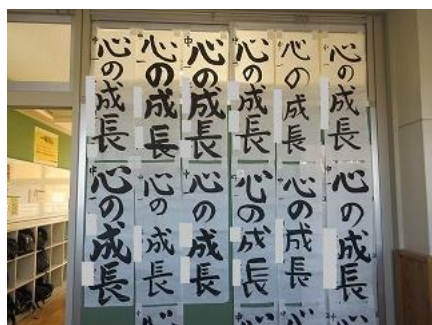 心の成長
心の成長
心の成長
心の成長
心の成長
心の成長
心の成長
心の成長
心の成長
心の成長
心の成長
心の成長